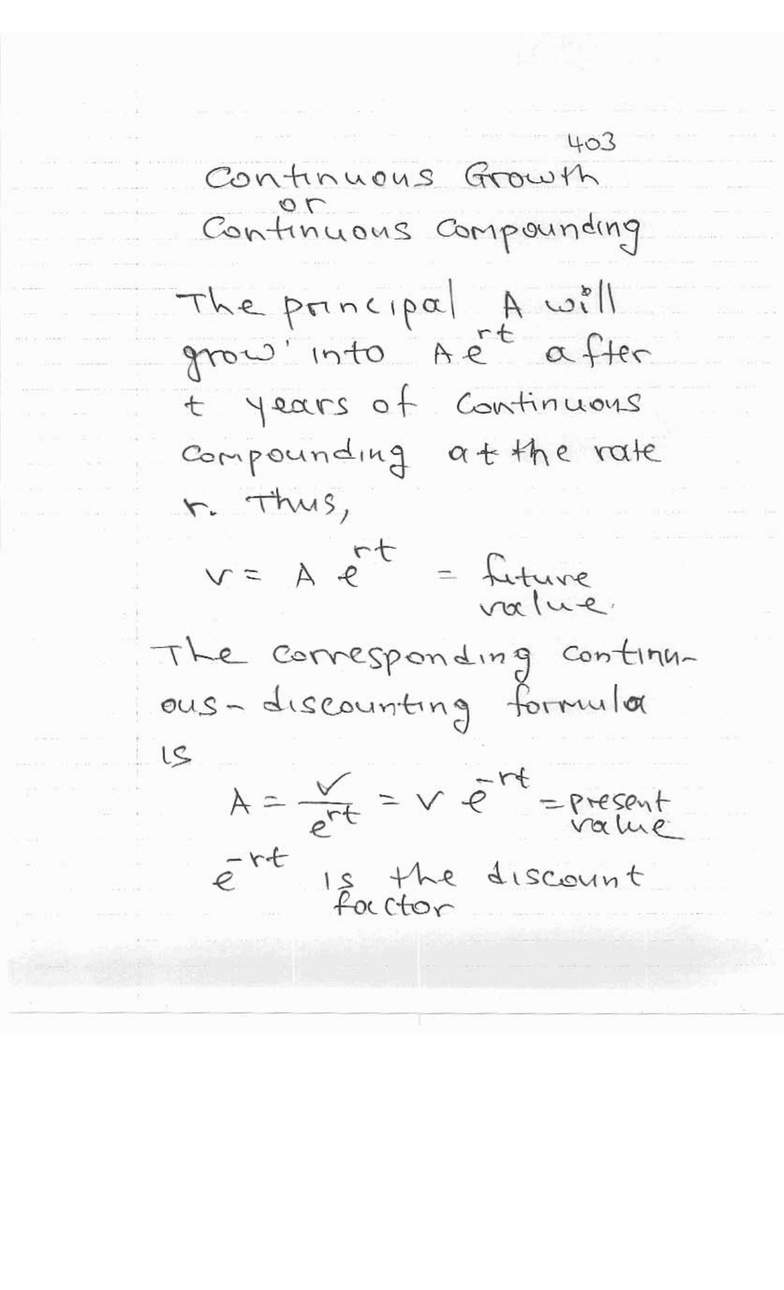 403
Continuous Growth
or
Continuous Compounding
The principal A will
grow into A e^rt after
t years of continuous
compounding at the rate
r. Thus,
V = A e^rt = future
value.
The corresponding continu-
ous-discounting formula
is
A = V/e^rt = V e^-rt = present
value
e^-rt is the discount
factor